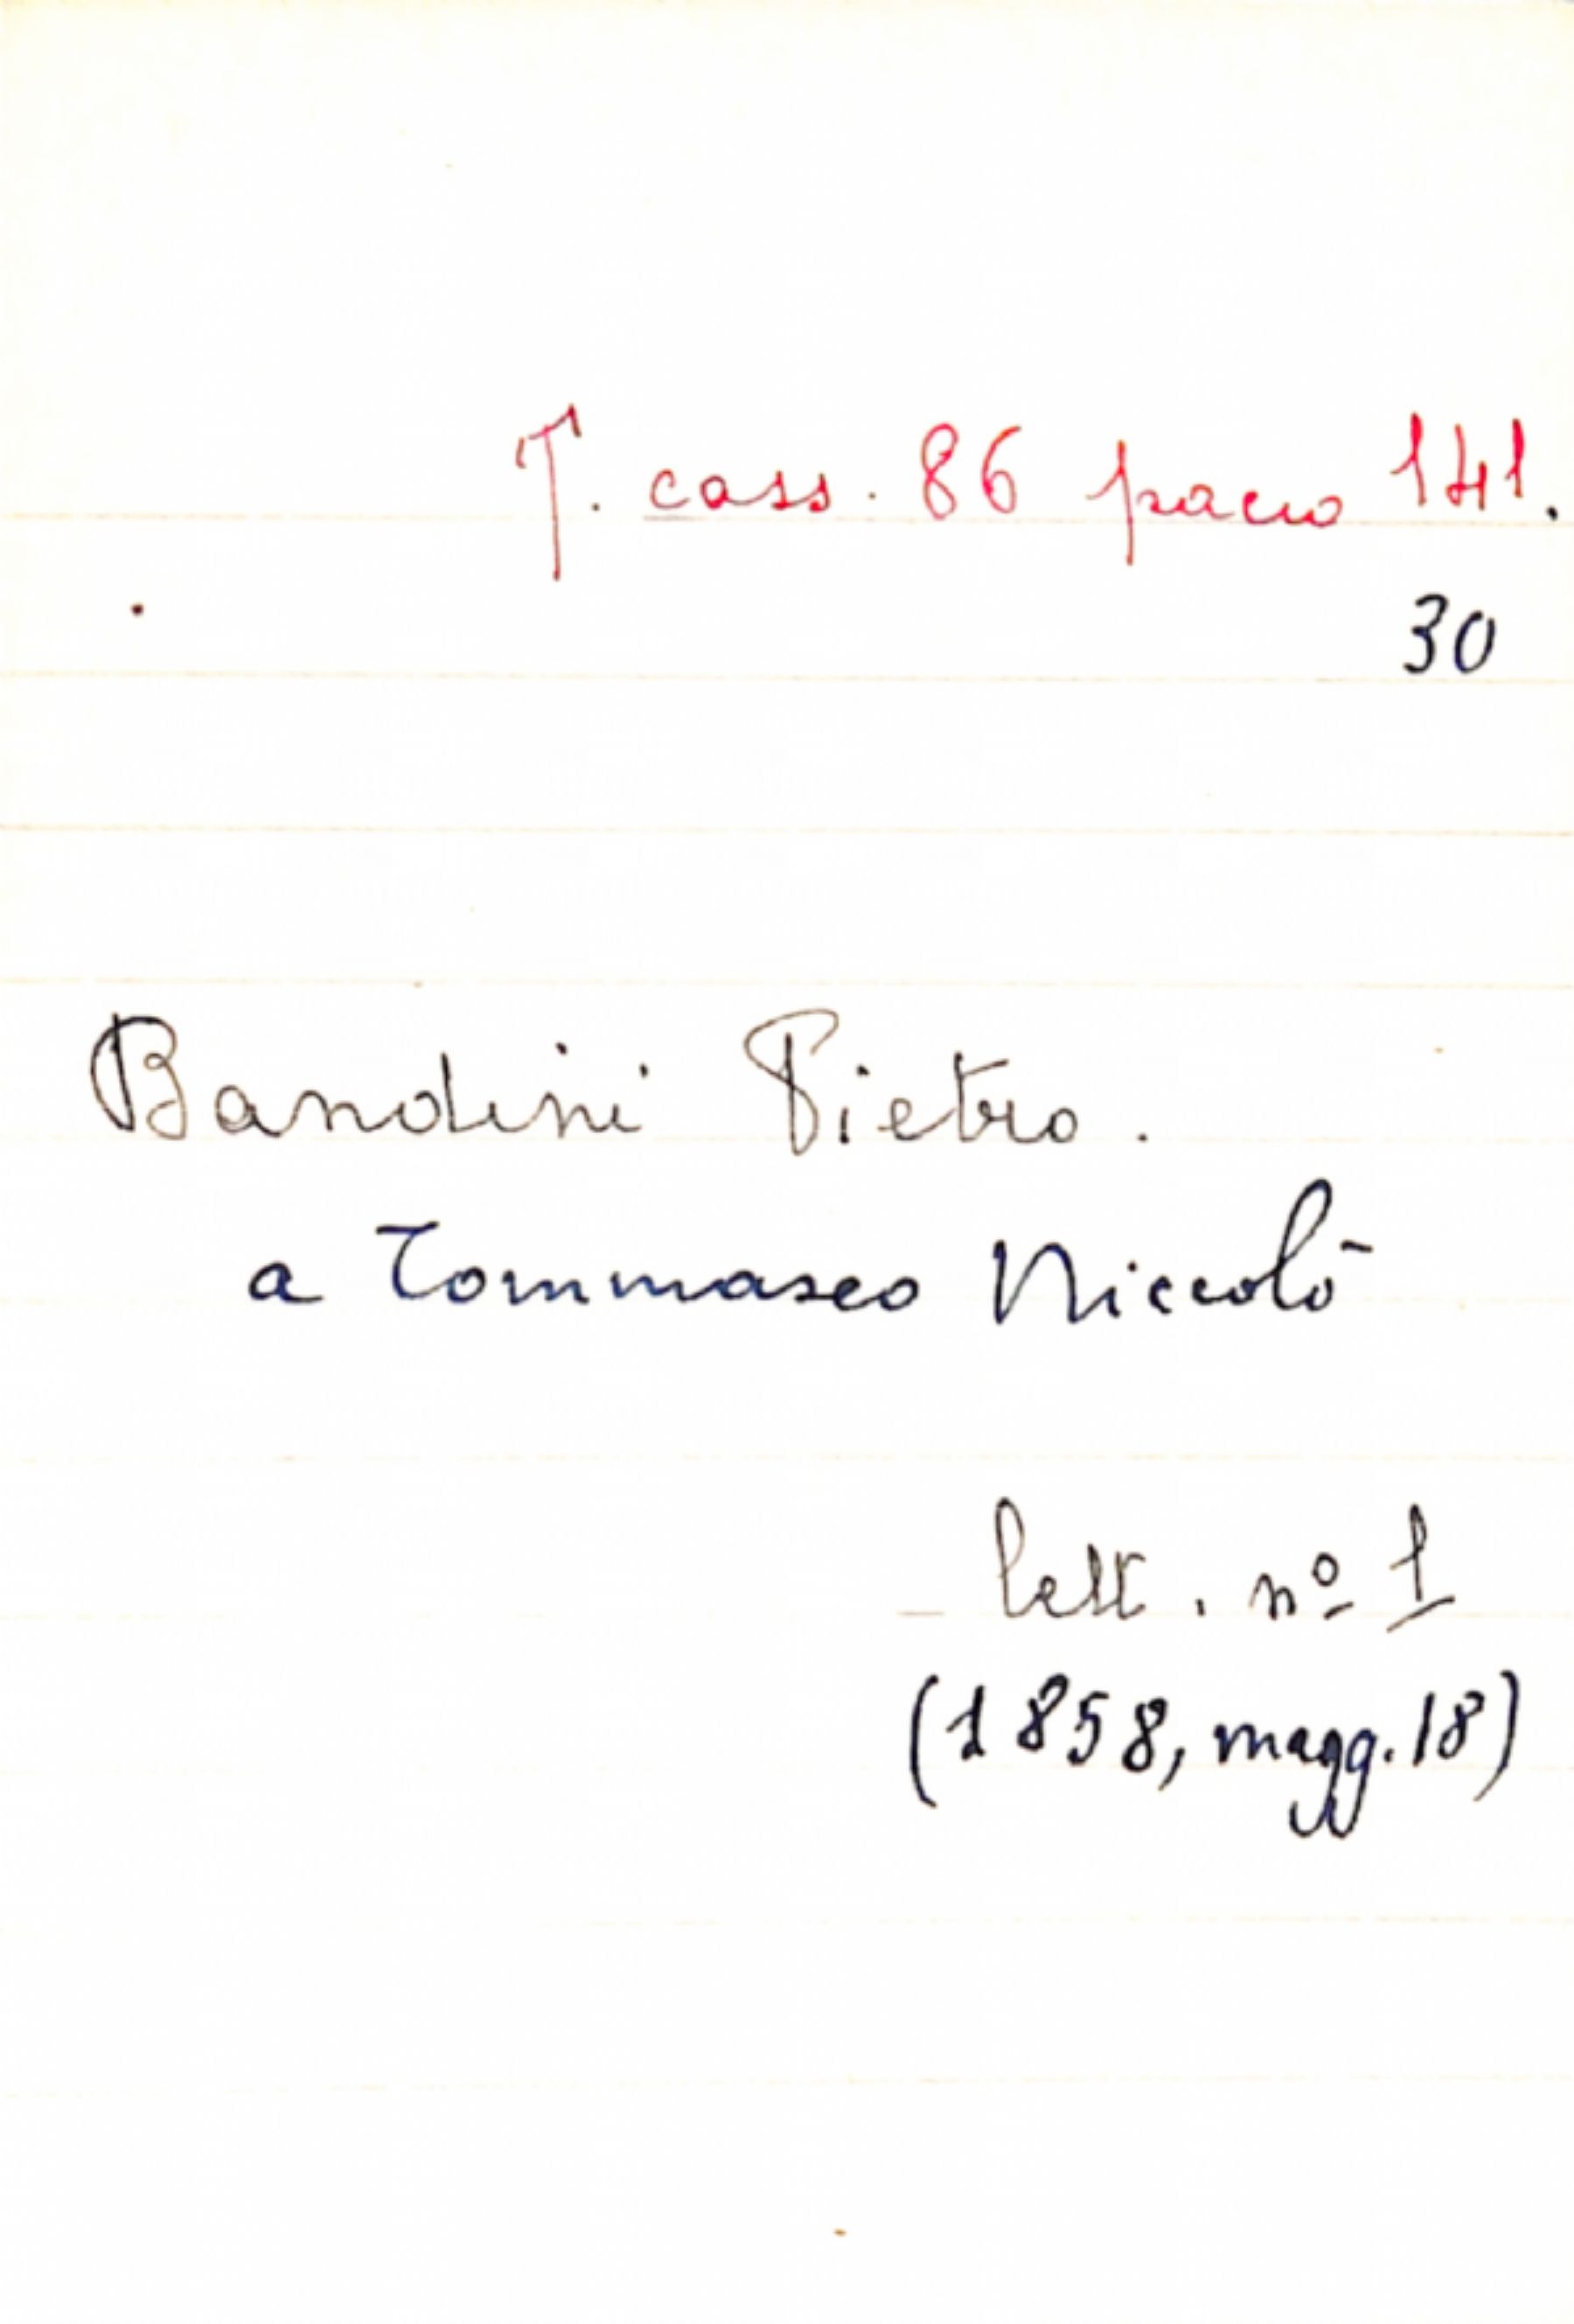 T. cass. 86 pacco 141.
30
Bandini Pietro.
a Tommaseo Niccolò
lett. nº 1
(1858, magg. 18)